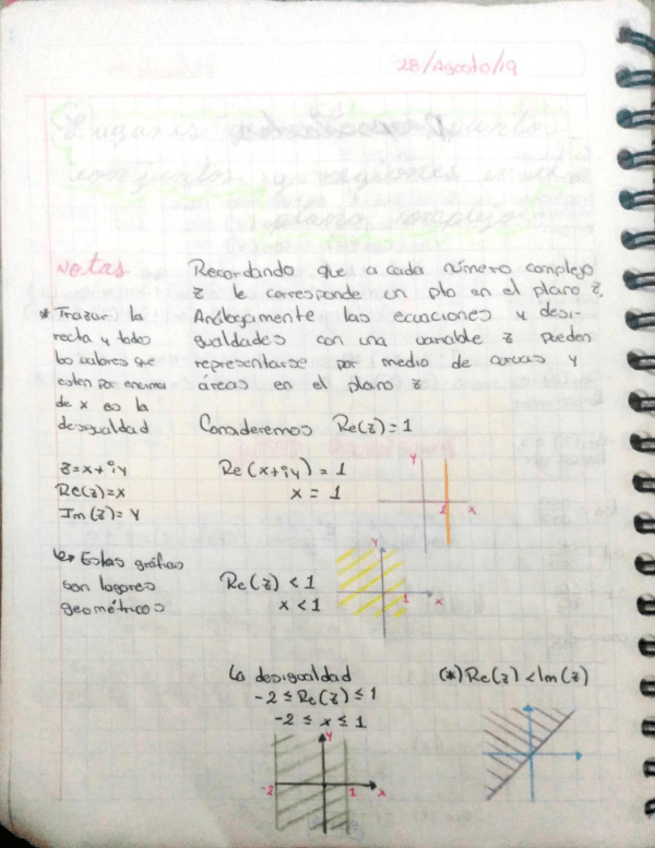 28/Agosto/19
Lugares
conjuntos y regiones en el
plano complejo
Notas
* Trazar la
recta y todo
los valores que
esten por encima
de x es la
desigualdad
z=x+iy
Re(z)=x
Im(z)=y
Estas gráficas
son lugares
geométricos
Recordando que a cada número complejo
z le corresponde un pto en el plano z.
Análogamente las ecuaciones y desi-
gualdades con una variable z pueden
representarse por medio de curvas y
áreas en el plano z
Consideremos Re(z)=1
Re(x+iy)=1
x = 1
y
1 x
Re(z) < 1
x < 1
y
1 x
La desigualdad
-2 ≤ Re(z) ≤ 1
-2 ≤ x ≤ 1
y
-2 1 x
(*) Re(z) < Im(z)